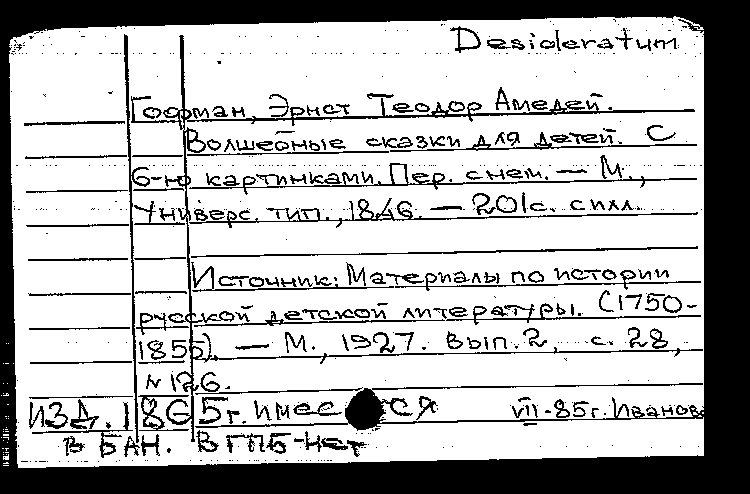 Desideratum
Гофман, Эрнст Теодор Амедей.
Волшебные сказки для детей. С
6-ю картинками. Пер. с нем. — М.,
Универс. тип., 1846. — 201с. с илл.
Источник: Материалы по истории
русской детской литературы. (1750-
1855). — М., 1927. Вып. 2, с. 28,
№ 126.
Изд. 1865г. имеется VII-85г. Иванова
в БАН. В ГПБ-нет